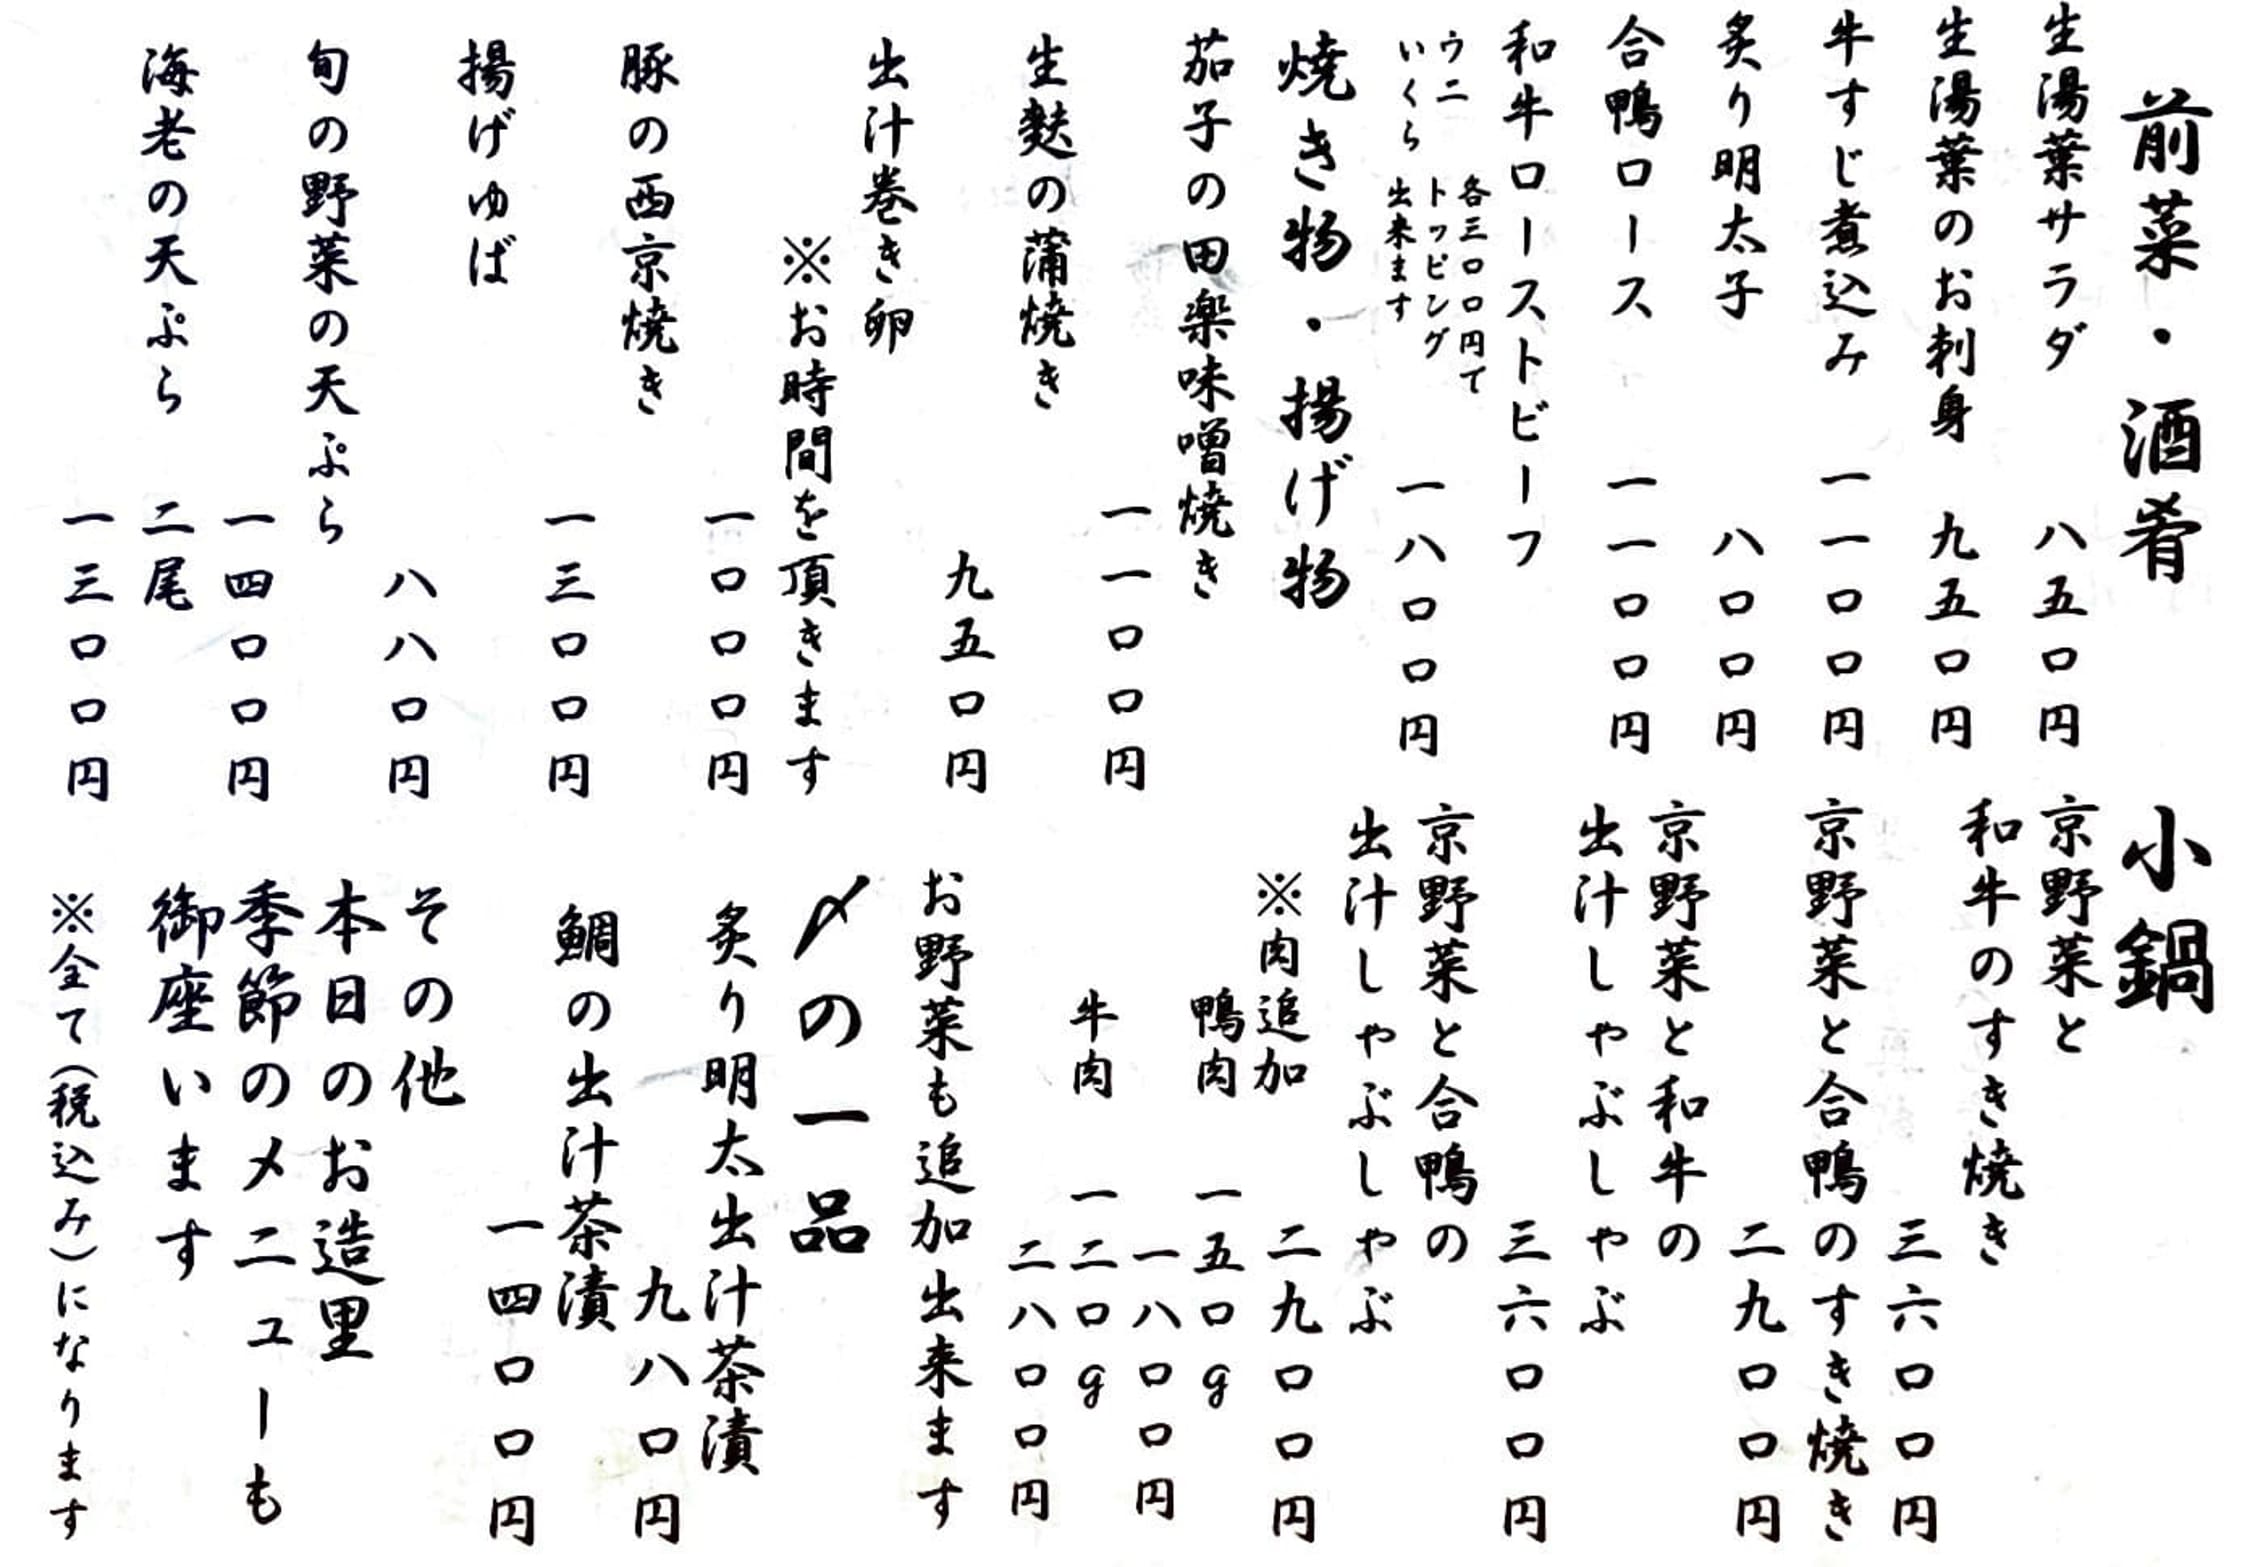 前菜・酒肴
生湯葉サラダ
八五〇円
生湯葉のお刺身
九五〇円
牛すじ煮込み
一一〇〇円
炙り明太子
八〇〇円
合鴨ロース
一一〇〇円
和牛ローストビーフ
ウニ
いくら
各三〇〇円で
トッピング
出来ます
一八〇〇円
焼き物・揚げ物
茄子の田楽味噌焼き
一一〇〇円
生麩の蒲焼き
九五〇円
出汁巻き卵
※お時間を頂きます
一〇〇〇円
豚の西京焼き
一三〇〇円
揚げゆば
八八〇円
旬の野菜の天ぷら
一四〇〇円
海老の天ぷら 二尾
一三〇〇円
小鍋
京野菜と
和牛のすき焼き
三六〇〇円
京野菜と合鴨のすき焼き
二九〇〇円
京野菜と和牛の
出汁しゃぶしゃぶ
三六〇〇円
京野菜と合鴨の
出汁しゃぶしゃぶ
二九〇〇円
※肉追加
鴨肉 一五〇g
一八〇〇円
牛肉 一二〇g
二八〇〇円
お野菜も追加出来ます
〆の一品
炙り明太出汁茶漬
九八〇円
鯛の出汁茶漬
一四〇〇円
その他
本日のお造里
季節のメニューも
御座います
※全て(税込み)になります